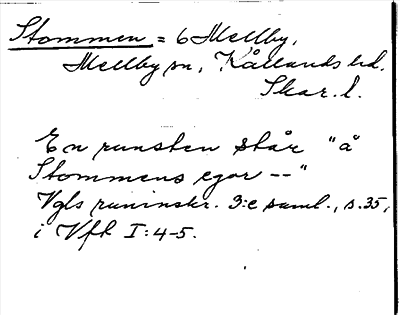 Stommen = 6 Mellby,
Mellby sn, Kållands hd.
Skar. l.
En runsten står "å
Stommens egor --"
Vgls runinskr. 3:e saml., s. 35,
i Vft I:4-5.